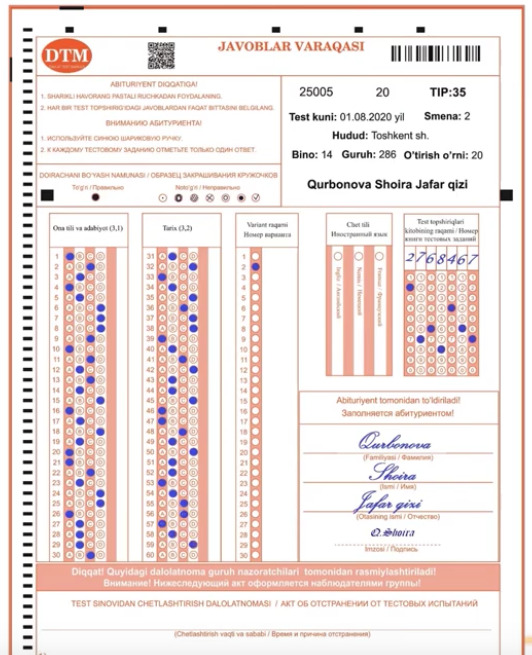 DTM
JAVOBLAR VARAQASI
ABITURIYENT DIQQATIGA!
1. SHARIKLI HAVORANG PASTALI RUCHKADAN FOYDALANING.
2. HAR BIR TEST TOPSHIRIG'IDAGI JAVOBLARDAN FAQAT BITTASINI BELGILANG.
ВНИМАНИЮ АБИТУРИЕНТА!
1. ИСПОЛЬЗУЙТЕ СИНЮЮ ШАРИКОВУЮ РУЧКУ.
2. К КАЖДОМУ ТЕСТОВОМУ ЗАДАНИЮ ОТМЕТЬТЕ ТОЛЬКО ОДИН ОТВЕТ.
DOIRACHANI BO'YASH NAMUNASI / ОБРАЗЕЦ ЗАКРАШИВАНИЯ КРУЖОЧКОВ
To'g'ri / Правильно Noto'g'ri / Неправильно
25005 20 TIP:35
Test kuni: 01.08.2020 yil Smena: 2
Hudud: Toshkent sh.
Bino: 14 Guruh: 286 O'tirish o'rni: 20
Qurbonova Shoira Jafar qizi
Ona tili va adabiyot (3,1)
1
2
3
4
5
6
7
8
9
10
11
12
13
14
15
16
17
18
19
20
21
22
23
24
25
26
27
28
29
30
Tarix (3,2)
31
32
33
34
35
36
37
38
39
40
41
42
43
44
45
46
47
48
49
50
51
52
53
54
55
56
57
58
59
60
Variant raqami
Номер варианта
1
2
3
4
5
6
7
8
9
10
11
12
13
14
15
16
17
18
19
20
21
22
23
24
25
26
27
28
29
30
Chet tili
Иностранный язык
Ingliz / Английский
Nemis / Немецкий
Fransuz / Французский
Test topshiriqlari
kitobining raqami / Номер
книги тестовых заданий
2768467
Abituriyent tomonidan to'ldiriladi!
Заполняется абитуриентом!
Qurbonova
(Familiyasi / Фамилия)
Shoira
(Ismi / Имя)
Jafar qizi
(Otasining ismi / Отчество)
Q.Shoira
Imzosi / Подпись
Diqqat! Quyidagi dalolatnoma guruh nazoratchilari tomonidan rasmiylashtiriladi!
Внимание! Нижеследующий акт оформляется наблюдателями группы!
TEST SINOVIDAN CHETLASHTIRISH DALOLATNOMASI / АКТ ОБ ОТСТРАНЕНИИ ОТ ТЕСТОВЫХ ИСПЫТАНИЙ
(Chetlashtirish vaqti va sababi / Время и причина отстранения)